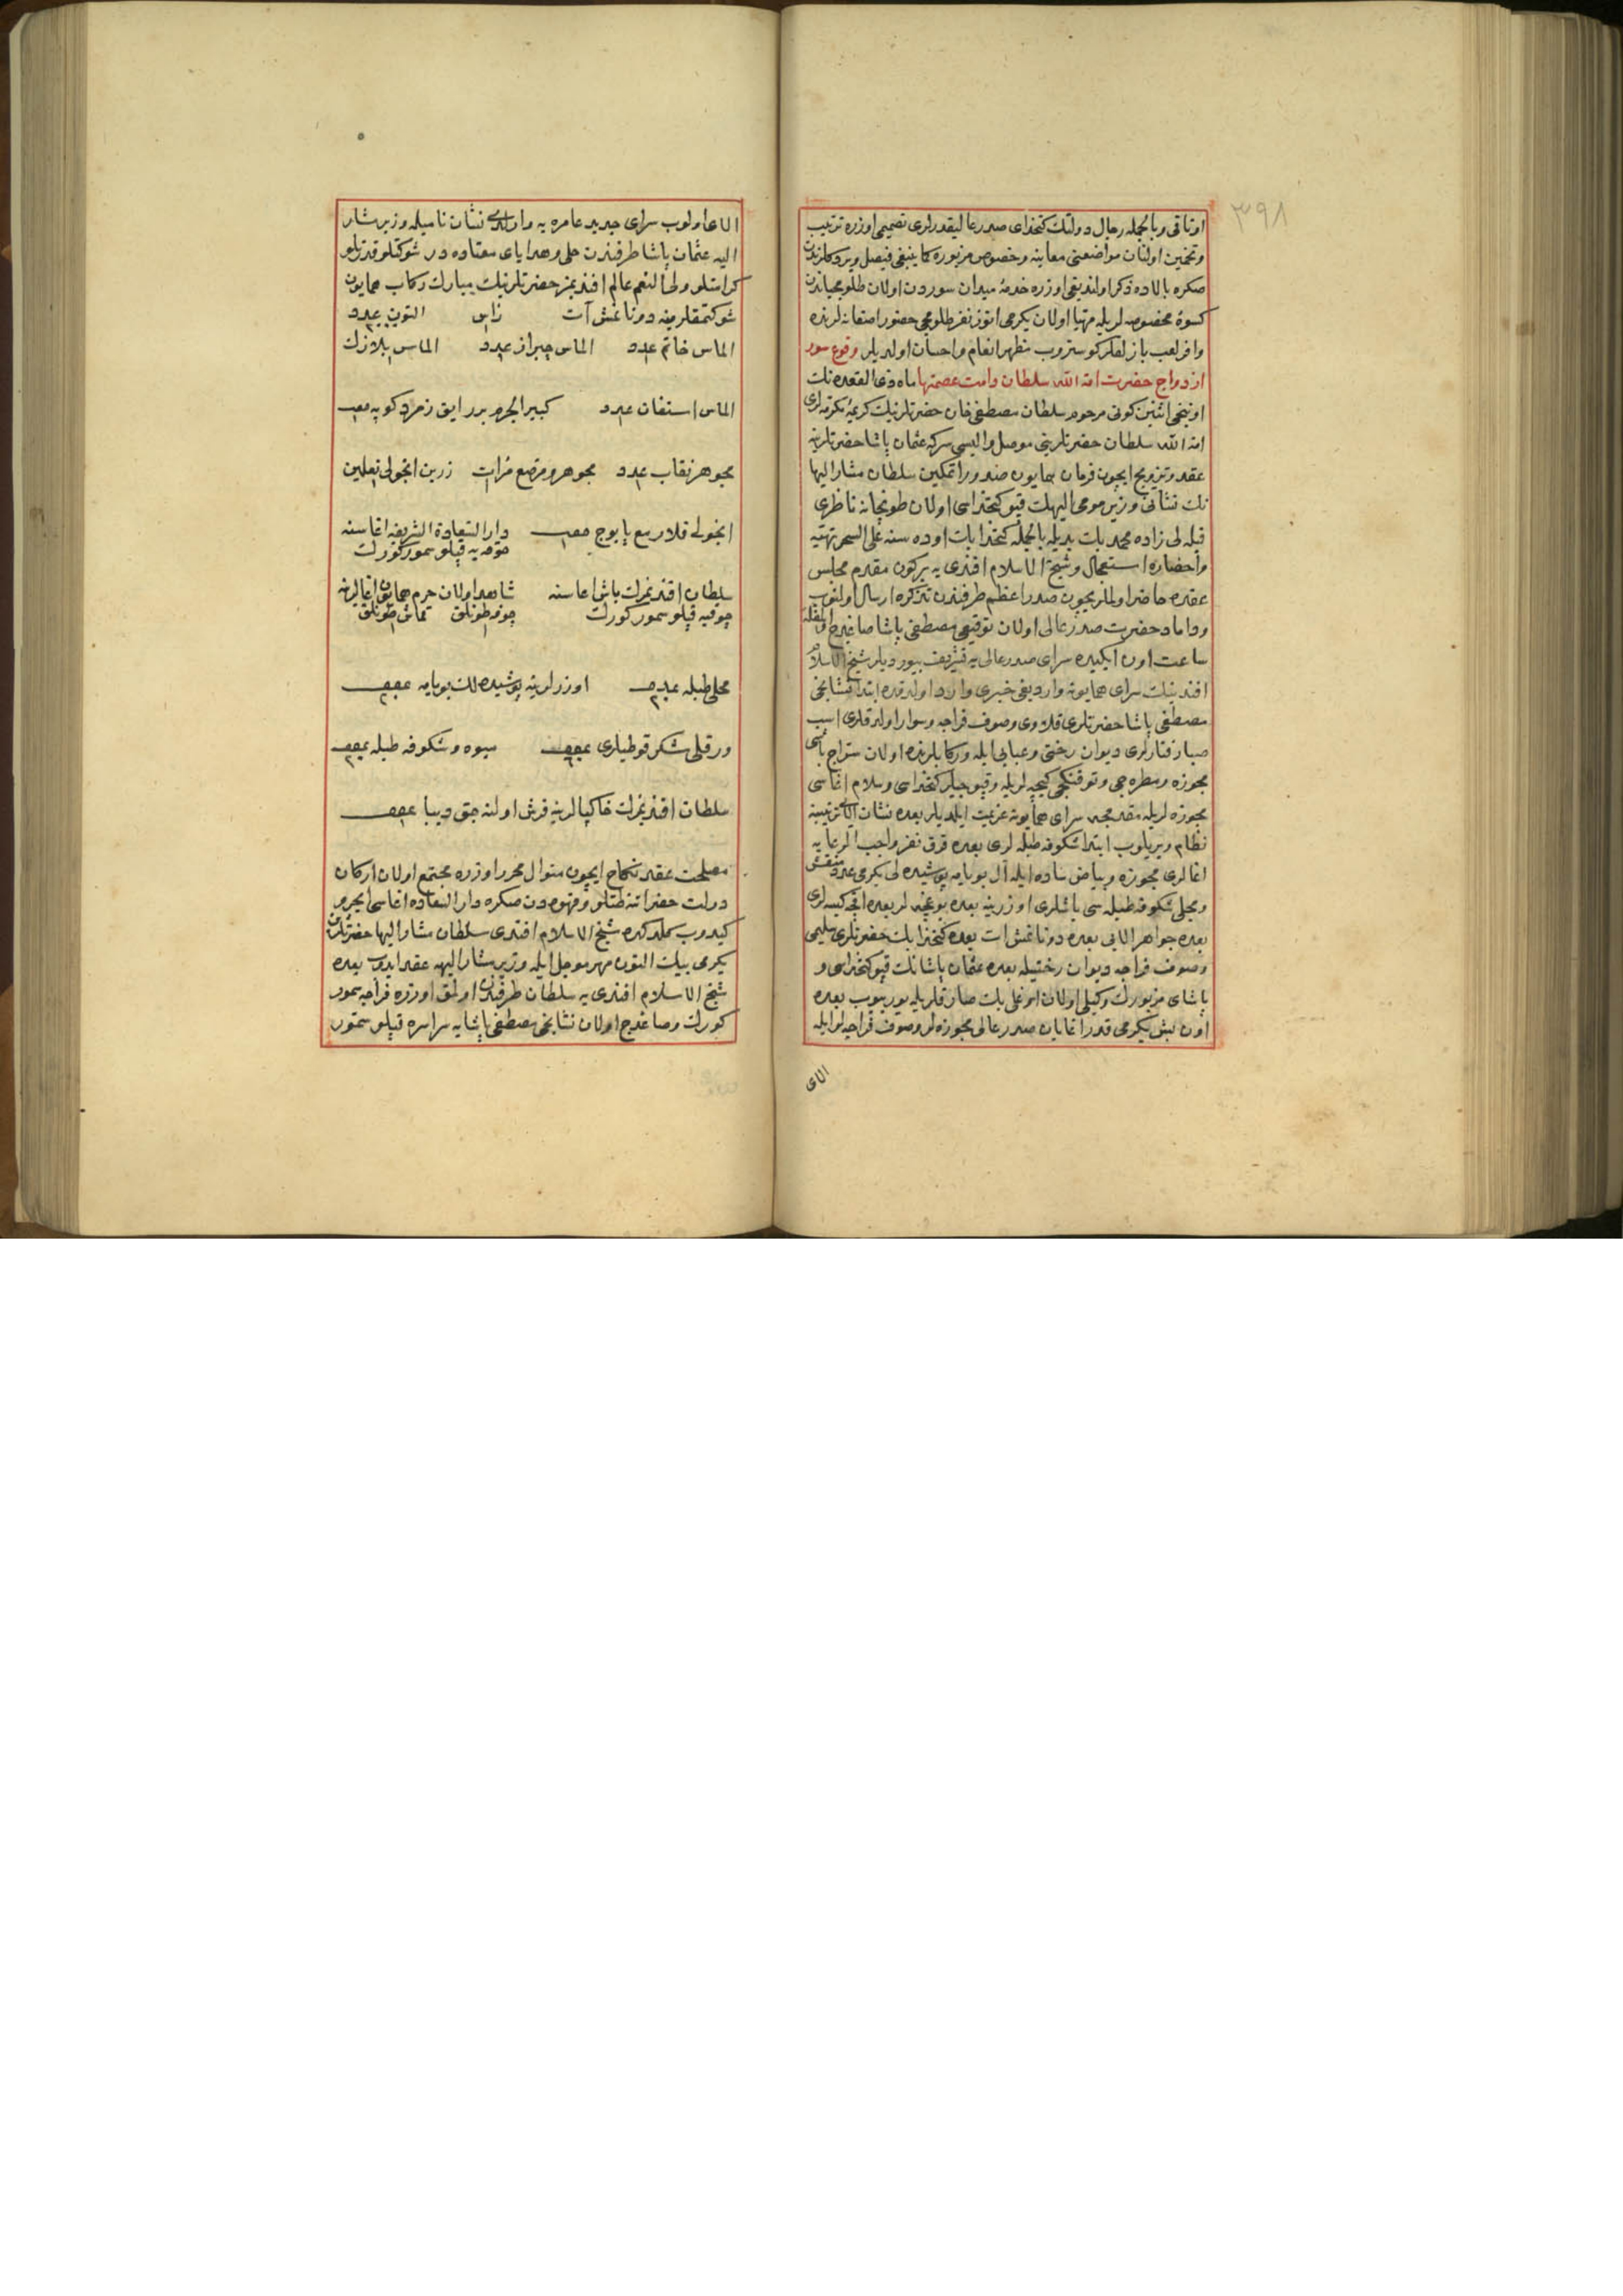 ٣٩٨
اوتاقی و بالجمله رجال دولتك كتخدای صدر عالیقدرلری تصمیمی اوزره ترتیب
وتخمین اولنان مواضعنی معاینه وخصوص مزبوره كما ینبغی فیصل ویردكلرندن
صكره بالاده ذكر اولندیغی اوزره خدمهٔ میدان سوردن اولان طلومبه‌جیاندن
كسوهٔ مخصوصه لریله مهیا اولان یكرمی اتوز نفر طلومبه‌جی حضور اصفانه لرنده
وافر لعب بازلقلر كوستروب مظهر انعام واحسان اولدیلر وقوع سور
ازدواج حضرت امة الله سلطان دامت عصمتها ماه ذی القعده نك
اوننجی اثنین كونی مرحوم سلطان مصطفی خان حضرتلرینك كریمهٔ مكرمه لری
امة الله سلطان حضرتلرینی موصل والیسی سركه عثمان پاشا حضرتلرینه
عقد وتزویج ایچون فرمان همایون صدور اتمكین سلطان مشار الیها
نك نشانی وزیر مومی الیهك قپو كتخداسی اولان طوپخانه ناظری
قبله لی زاده محمد بك یدیله بالجمله كتخدا بك اوده سنه علی السحر تهیه
واحضاره استعجال وشیخ الاسلام افندی یه بركون مقدم مجلس
عقده حاضر اولملریچون صدر اعظم طرفندن تذكره ارسال اولنوب
وداماد حضرت صدر عالی اولان توقیعی مصطفی پاشا صاغدج اولمغله
ساعت اون ایكیده سرای صدر عالی یه تشریف بیوردیلر شیخ الاسلام
افندینك سرای همایونه واردیغی خبری وارد اولدقده ابتدا نشانجی
مصطفی پاشا حضرتلری قلاوی وصوف فراجه وسوار اولدقلری اسب
صبا رفتارلری دیوان رختی وعبایی ایله وركابلرنده اولان سراج باشی
مجوزه ومطره جی وتوفنكجی كیجه لریله وقپوجیلر كتخداسی وسلام اغاسی
مجوزه لریله مقدمجه سرای همایونه عزیمت ایلدیلر بعده نشان الای ترتیبنه
نظام ویریلوب ابتدا شكوفه طبله لری بعده قرق نفر واجب الرعایه
اغالری مجوزه وبیاض ساده ایله آل بویامه پوشیده لی یكرمی عدد منقش
ومجلی شكوفه طبله سی باشلری اوزرینه بعده بوغچه لر بعده اقچه كیسه لری
بعده جواهر الایی بعده دونانمش ات بعده كتخدا بك حضرتلری سلیمی
وصوف فراجه دیوان رختیله بعده عثمان پاشانك قپو كتخداسی و
پاشای مزبورك وكیلی اولان اوغلی بك صارقلریله یوریوب بعده
اون بش یكرمی قدر اغایان صدر عالی مجوزه لر وصوف فراجه لر ایله
الای
الای اولوب سرای جدید عامره یه وارلدی نشان نامیله وزیر مشار
الیه عثمان پاشا طرفندن حلی وهدایای معتاده در شوكتلو قدرتلو
كرامتلو ولی النعم عالم افندیمز حضرتلرینك مبارك ركاب همایون
شوكتمقلرینه دونانمش آت راس التون عدد
الماس خاتم عدد الماس چبراز عدد الماس بلازك
الماس استفان عدد كبیر الجرم بر رایق زمرد كوپه معه
مجوهر نقاب عدد مجوهر ومرصع مرات زرین انجولی نعلین
انجولی قلار مع پابوج معه دار السعادة الشریفه اغاسنه
چوقه یه قپلو سمور كورك
سلطان افندیمزك باش اغاسنه شاهد اولان حرم همایون اغالرینه
چوقیه قپلو سمور كورك چوقه طونلق قماش طونلق
محلی طبله عدد اوزرلرینه پوشیده لك بویامه عدد
ورقلی شكر قوطیلری عدد میوه وشكوفه طبله عدد
سلطان افندیمزك خاكپالرینه فرش اولنه جق دیبا عدد
مصلحت عقد نكاح ایچون منوال محرر اوزره مجتمع اولان اركان
دولت حضراتنه طتلو وقهوه دن صكره دار السعاده اغاسی ایچرو
كیدوب كلدكده شیخ الاسلام افندی سلطان مشار الیها حضرتلرین
یكرمی بیك التون مهر مؤجل ایله وزیر مشار الیهه عقد ایدوب بعده
شیخ الاسلام افندی یه سلطان طرفندن اولمق اوزره فراجه سمور
كورك وصاغدج اولان نشانجی مصطفی پاشایه سراسره قپلو سمور